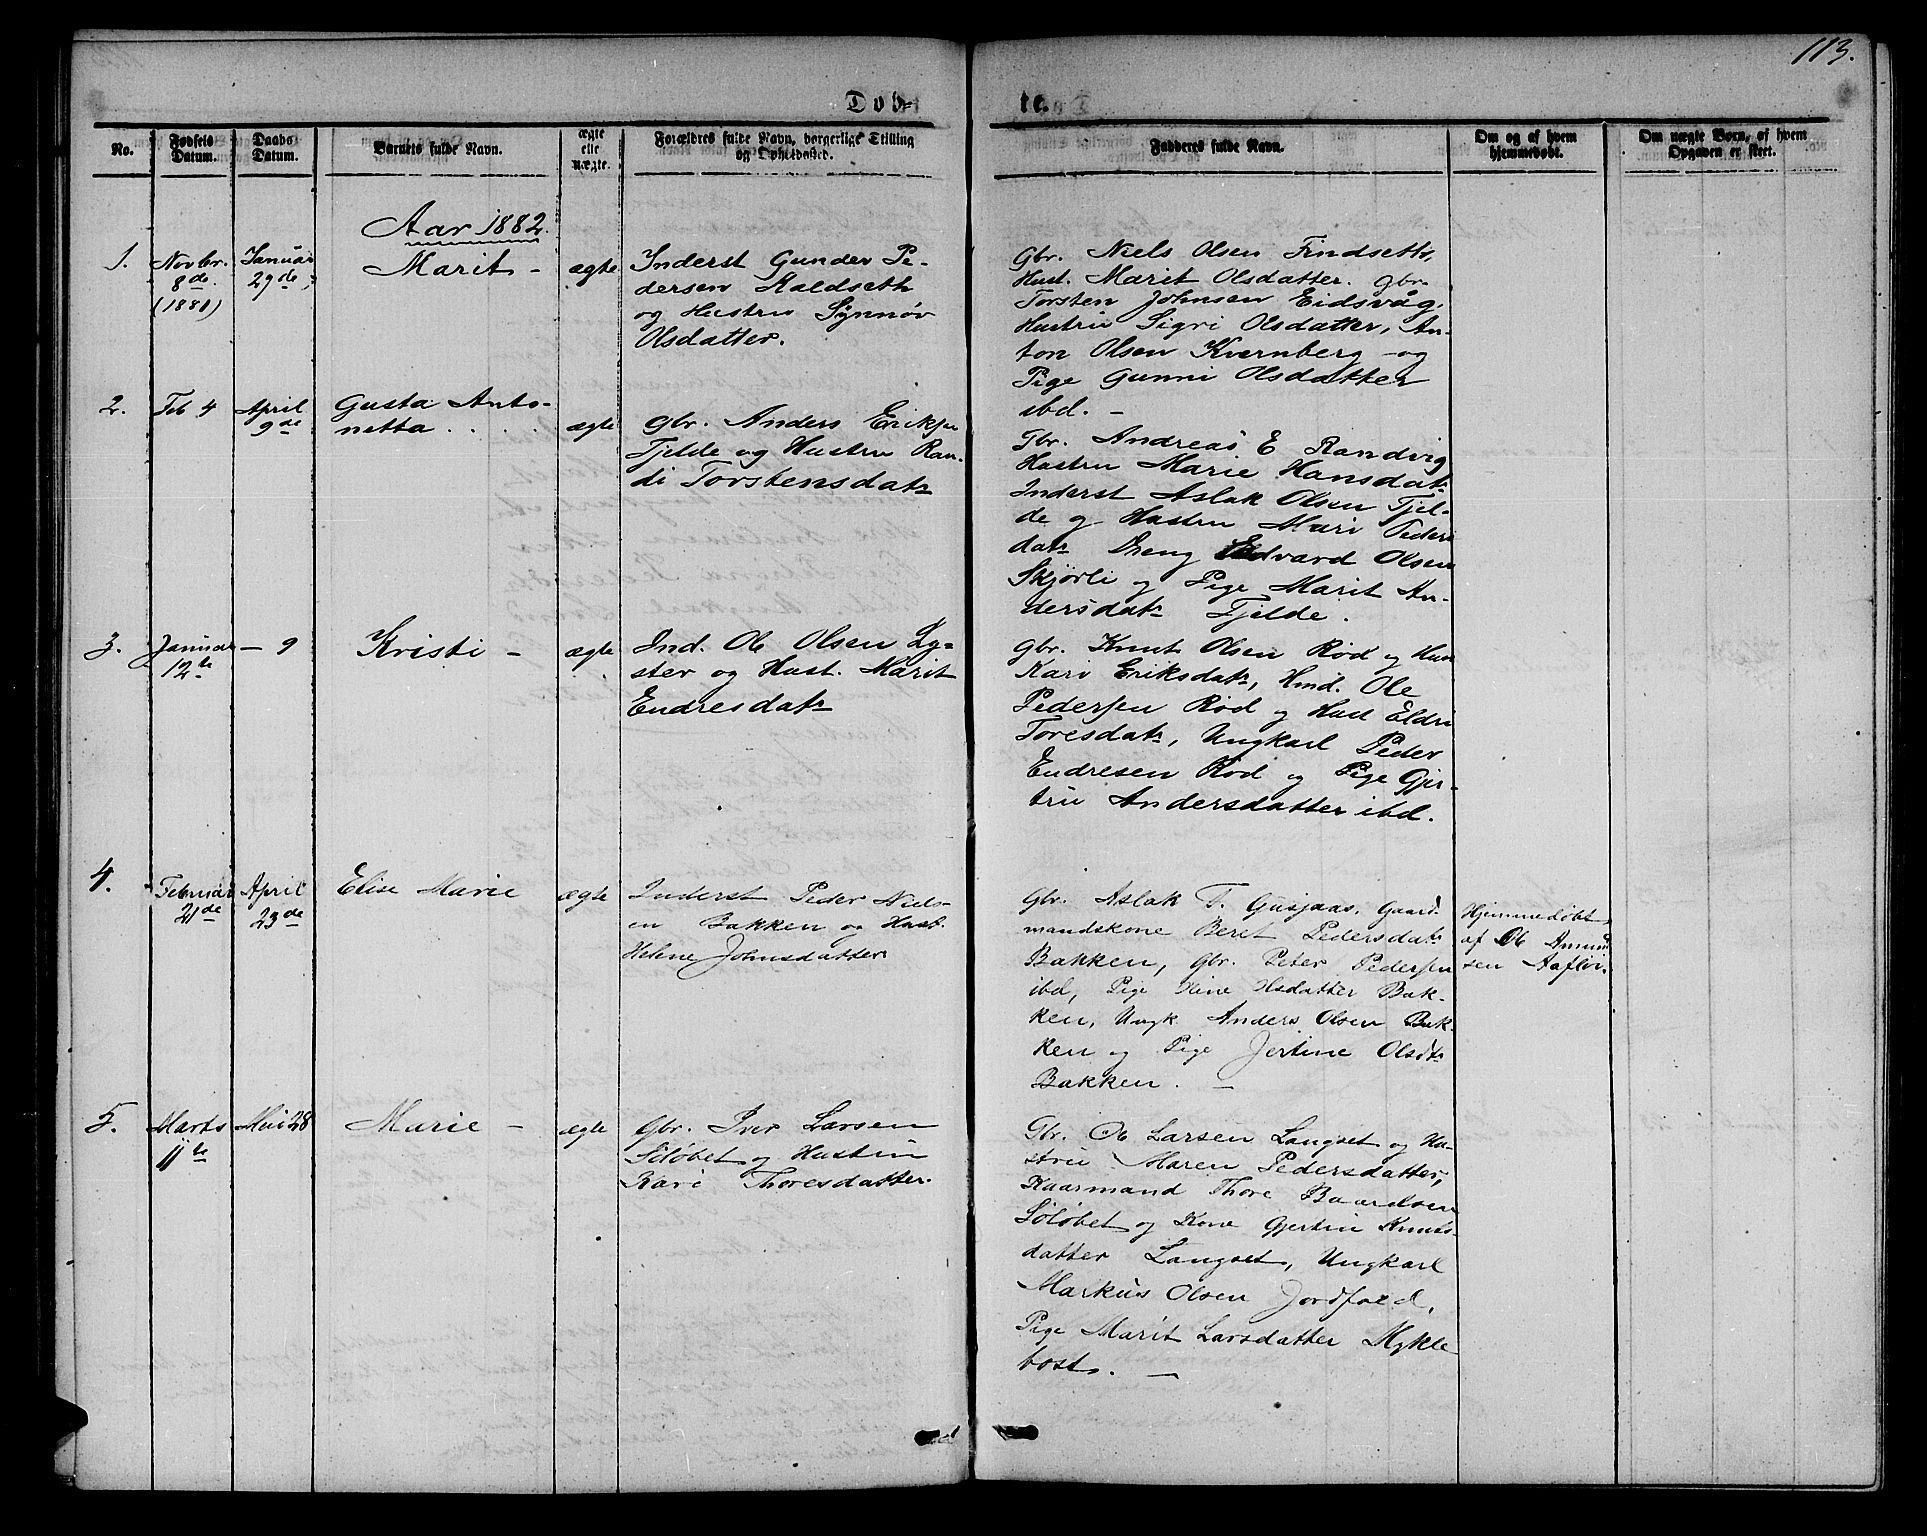 113.
Døbte.
No.
Fødsels Datum.
Daabs Datum.
Barnets fulde Navn.
ægte elle uægte.
Forældres fulde Navn, borgerlige Stilling og Opholdssted.
Fadderes fulde Navn.
Om og af hvem hjemmedøbt.
Om uægte Børn, af hvem Opgaven er skeet.
Aar 1882.
1.
Novbr. 8de (1881)
Januar 29de
Marit -
ægte
Inderst Gunder Pe-
dersen Kaldseth
og Hustru Synnøv
Olsdatter.
Gbr. Niels Olsen Findseth,
Hust. Marit Olsdatter. Gbr.
Torsten Johnsen Eidsvåg,
Hustru Sigri Olsdatter, An-
ton Olsen Kvernberg - og
Pige Gunni Olsdatter
ibd. -
2.
Feb 4
April 9de
Gusta Anto-
netta . . .
ægte
Gbr. Anders Eriksen
Tjelde og Hustru Ran-
di Torstensdatr
Gbr. Andreas E Randvig
Hustru Marie Hansdatr
Inderst Aslak Olsen Tjel-
de og Hustru Mari Peders
datr Dreng Edvard Olsen
Skjørli og Pige Marit An-
dersdatr Tjelde.
3.
Januar 12te
- 9
Kristi -
ægte
Ind. Ole Olsen Ly-
ster og Hust. Marit
Endresdatr
Gbr. Knut Olsen Rød og Hus
Kari Eriksdatr, Hmd. Ole
Pedersen Rød og Hust Eldri
Toresdatr, Ungkarl Peder
Endresen Rød og Pige Gjer-
tru Andersdatter ibd.
4.
Februar 21de
April 23de
Elise Marie
ægte
Inderst Peder Niels-
en Bakken og Hust.
Helene Johnsdatter
Gbr. Aslak T. Gusjaas, Gaard-
mandskone Beret Pedersdatr
Bakken, Gbr. Peter Pedersen
ibd, Pige Oline Olsdatter Bak-
ken, Ungk Anders Olsen Bak-
ken og Pige Jertine Olsdtr
Bakken. -
Hjemmedøbt
af Ole Amun
sen Aafløi.
5.
Marts 11te
Mai 28
Marie -
ægte
Gbr. Iver Larsen
Søløbet og Hustru
Kari Thoresdatter.
Gbr. Ole Larsen Langset og Hu-
stru Maren Pedersdatter,
Kaarmand Thore Baardsen
Søløbet og Kone Gjertru Knuts-
datter Langset, Ungkarl
Markus Olsen Jordfald,
Pige Marit Larsdatter Mykle
bost. -